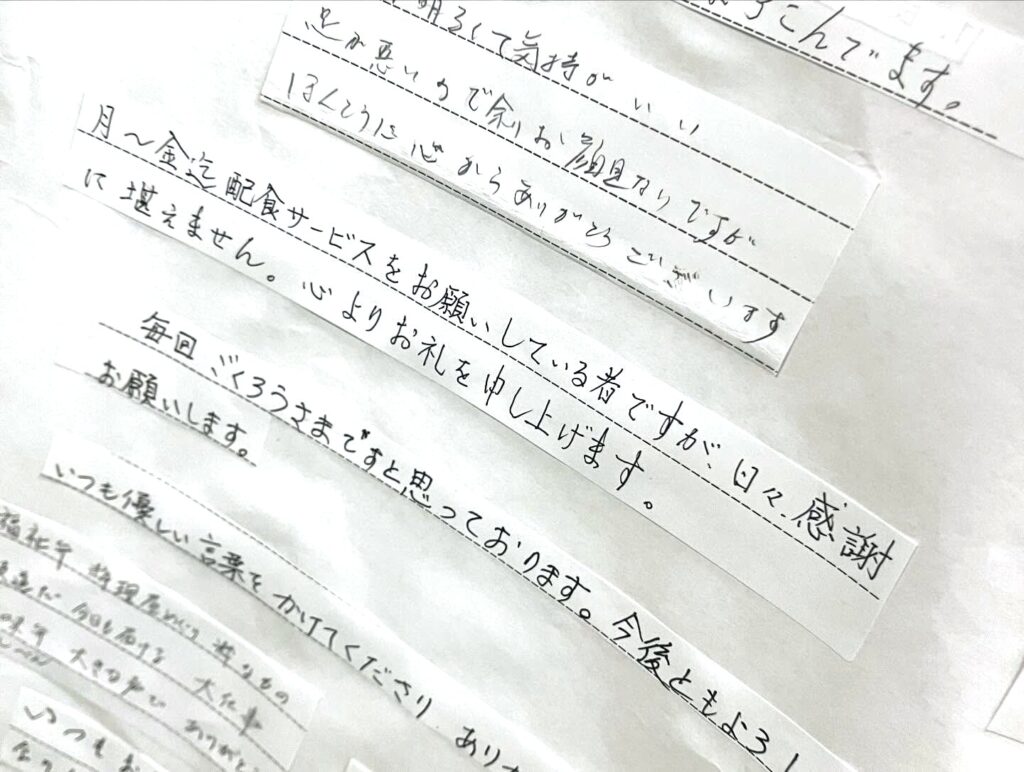 こんでます。
明るくて気持がいい
足が悪いので余りお顔見なりですが
ほんとうに心からありがとうございます
月～金迄配食サービスをお願いしている者ですが、日々感謝
に堪えません。心よりお礼を申し上げます。
毎回ごくろうさまですと思っております。今後ともよろし
お願いします。
いつも優しい言葉をかけてくださり、あり
福祉車 料理屋めぐり 粋なもの
今日も届ける 大仕事
大きな声で ありがと
いつもお